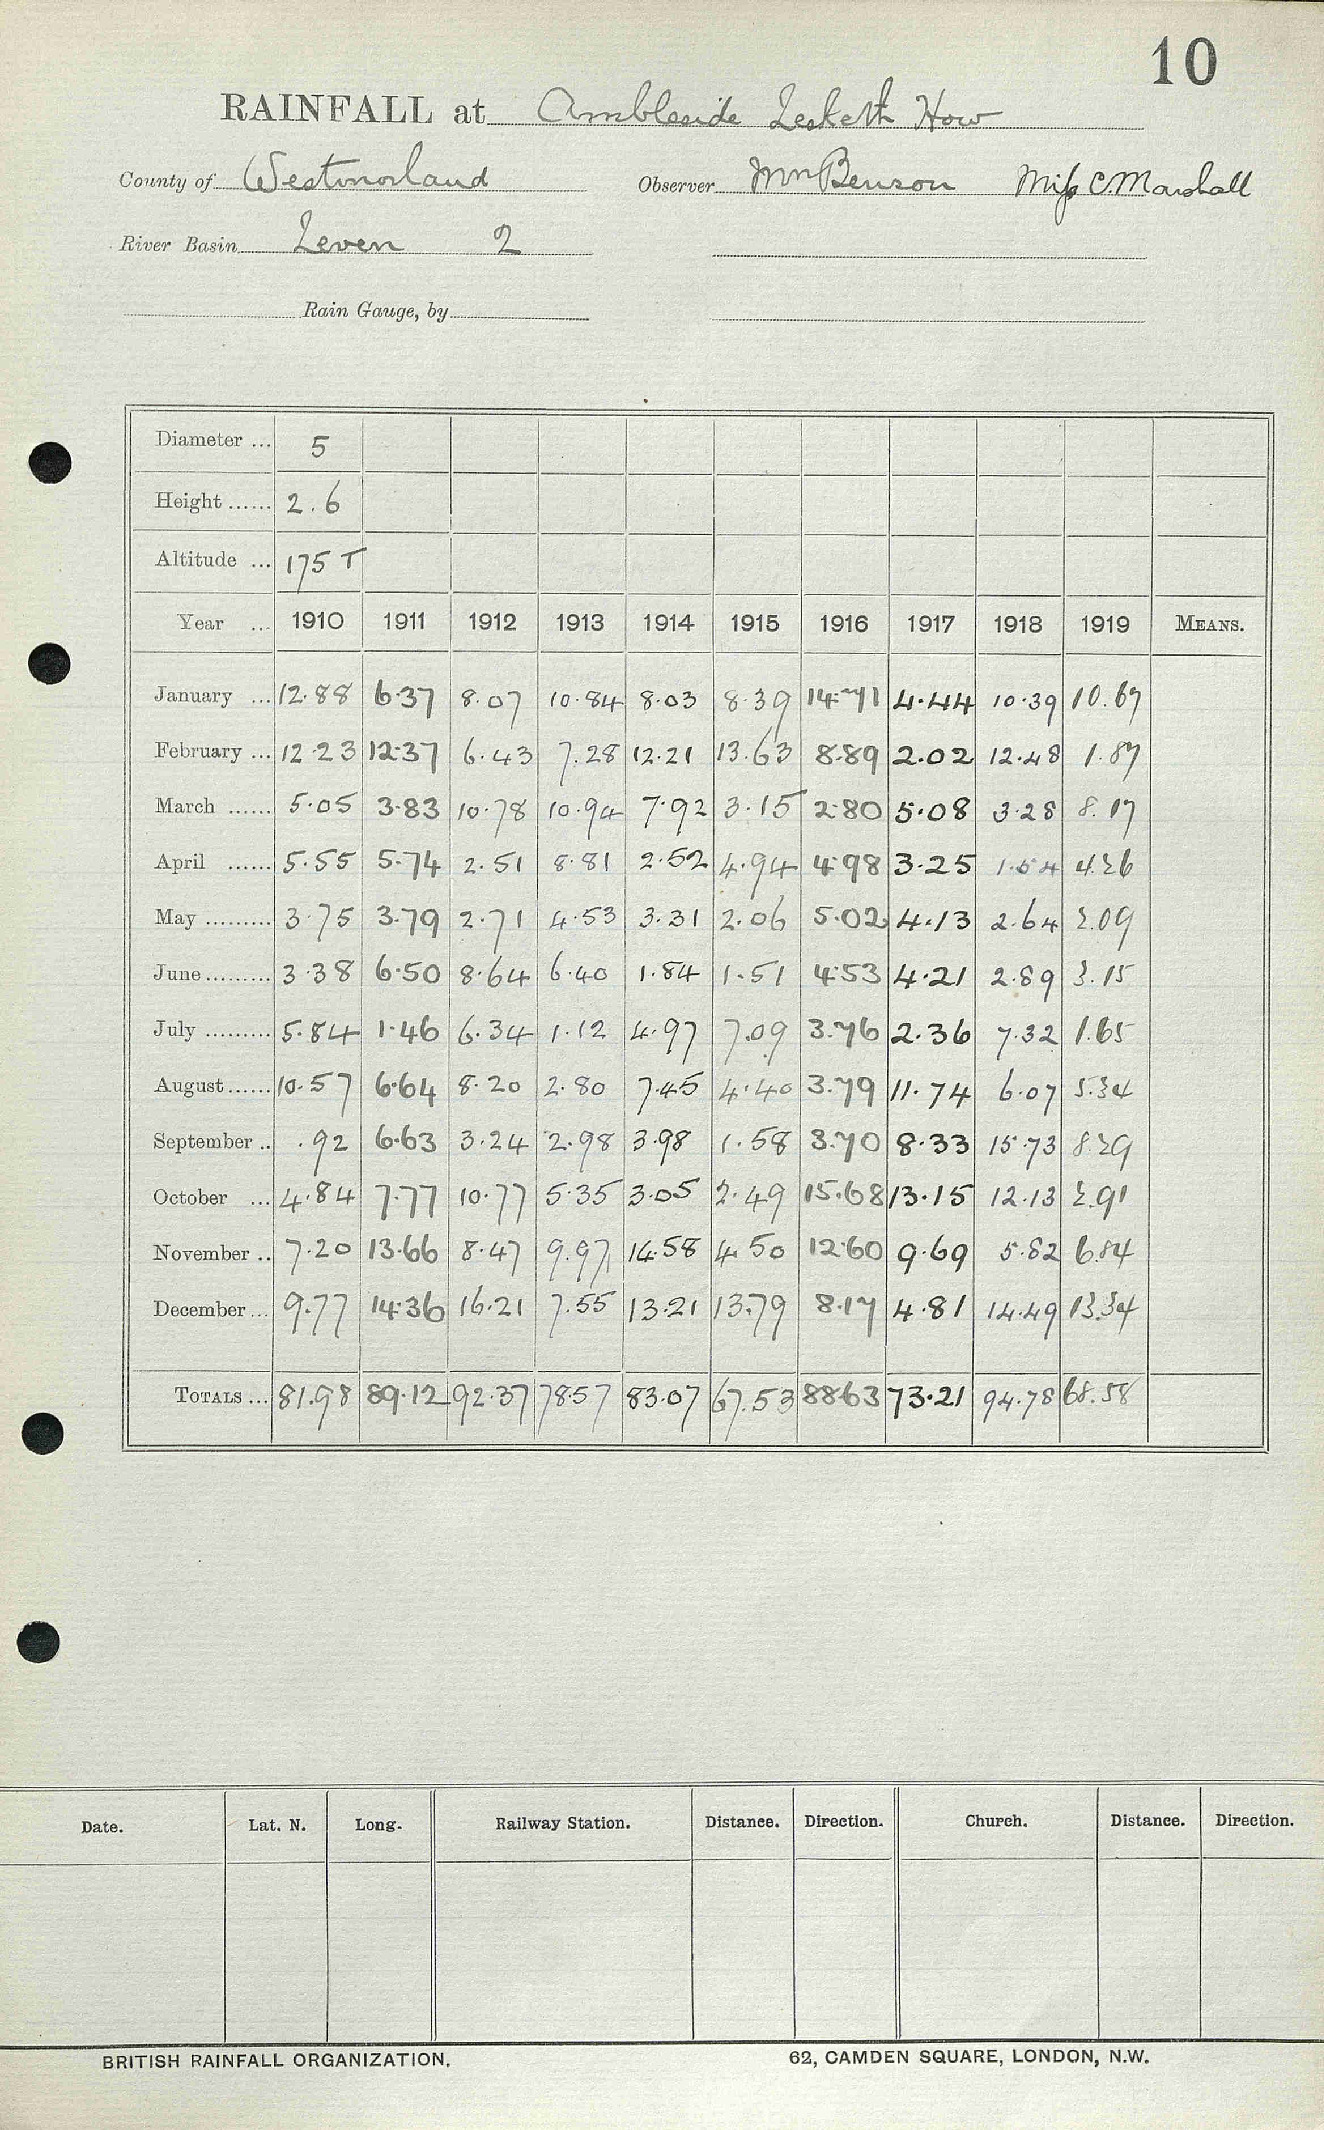 10
RAINFALL at Ambleside Lesketh How
County of Westmorland Observer Mrs Benson Miss C. Marshall
River Basin Leven 2
Rain Gauge, by
Diameter ... 5
Height ...... 2.6
Altitude ... 175 T
Year ... 1910 1911 1912 1913 1914 1915 1916 1917 1918 1919 MEANS.
January ... 12.88 6.37 8.07 10.84 8.03 8.39 14.71 4.44 10.39 10.67
February ... 12.23 12.37 6.43 7.28 12.21 13.63 8.89 2.02 12.48 1.87
March ...... 5.05 3.83 10.78 10.94 7.92 3.15 2.80 5.08 3.28 8.17
April ...... 5.55 5.74 2.51 8.81 2.52 4.94 4.98 3.25 1.54 4.26
May ......... 3.75 3.79 2.71 4.53 3.31 2.06 5.02 4.13 2.64 2.09
June ......... 3.38 6.50 8.64 6.40 1.84 1.51 4.53 4.21 2.89 3.15
July ......... 5.84 1.46 6.34 1.12 4.97 7.09 3.76 2.36 7.32 1.65
August ...... 10.57 6.64 8.20 2.80 7.45 4.40 3.79 11.74 6.07 5.34
September .. .92 6.63 3.24 2.98 3.98 1.58 3.70 8.33 15.73 8.29
October ... 4.84 7.77 10.77 5.35 3.05 2.49 15.68 13.15 12.13 2.91
November .. 7.20 13.66 8.47 9.97 14.58 4.50 12.60 9.69 5.82 6.84
December ... 9.77 14.36 16.21 7.55 13.21 13.79 8.17 4.81 14.49 13.34
TOTALS ... 81.98 89.12 92.37 78.57 83.07 67.53 88.63 73.21 94.78 68.58
Date. Lat. N. Long. Railway Station. Distance. Direction. Church. Distance. Direction.
BRITISH RAINFALL ORGANIZATION. 62, CAMDEN SQUARE, LONDON, N.W.